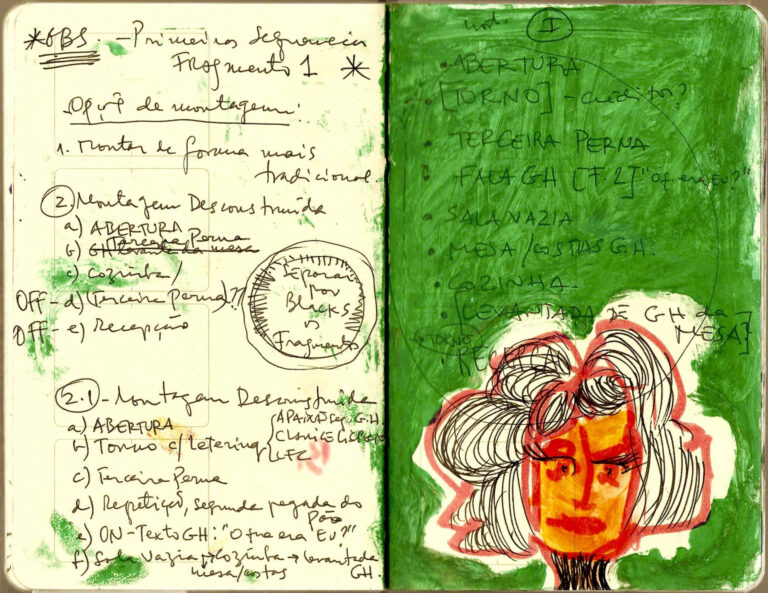 *OBS. - Primeiras Sequencias
Fragmento 1 *
Opç. de montagem:
1. Montar de forma mais
tradicional.
2. Montagem Desconstruída
a) ABERTURA
Terceira Perna
b) GH levantada mesa
c) Cozinha/
OFF - d) (Terceira Perna)??
OFF - e) Recepção
Separar
por
Blacks
os
Fragmentos
2.1 - Montagem Desconstruída
a) ABERTURA
b) Torno c/ Letering
[APAIXÃO Seg. G.H.
CLARICE LISPECTOR
LFC
c) Terceira Perna
d) Repetição, segunda pegada do
Pão
e) ON - Texto GH: "O que era Eu?"
f) Sala Vazia → Cozinha → Levantada
mesa/costas GH.
I
• ABERTURA
• [TORNO] - créditos?
• TERCEIRA PERNA
• FALA GH [F.2] "O q era Eu?"
• SALA VAZIA
• MESA/COSTAS G.H.
• COZINHA.
• [LEVANTADA DE GH da
MESA]
TORNO